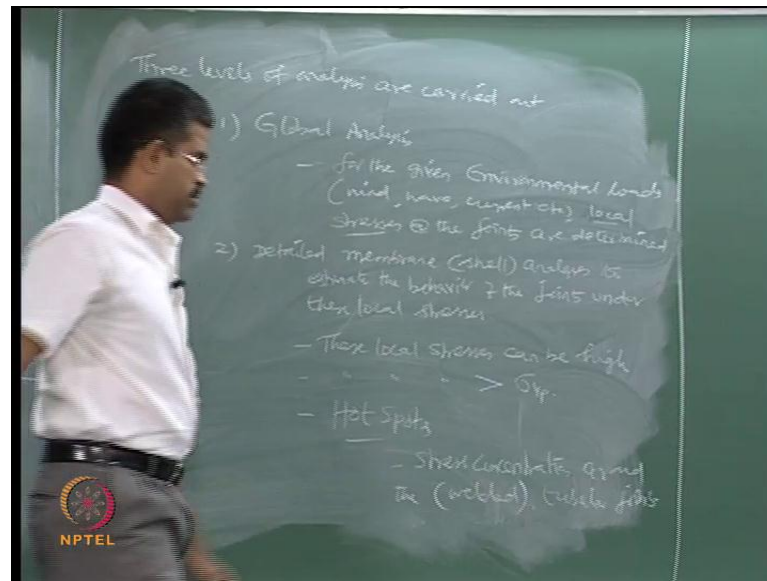 Three levels of analysis are carried out
1) Global Analysis
- for the given Environmental loads
(wind, wave, current etc) local
stresses @ the joints are determined
2) Detailed membrane (shell) analysis to
estimate the behavior of the joints under
these local stresses
- These local stresses can be high
- " " " " > σyp.
- Hot Spots
- Stress concentration around
the (welded), tubular joints
NPTEL